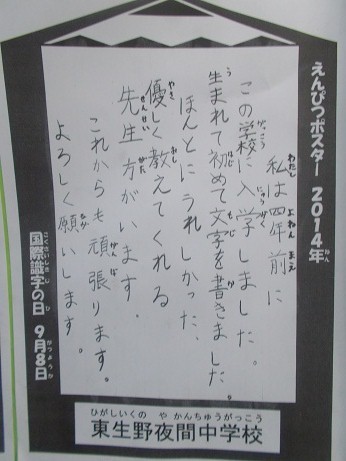 えんぴつポスター 2014年
私は四年前に
この学校に入学しました。
生まれて初めて文字を書きました。
ほんとにうれしかった、
優しく教えてくれる
先生方がいます。
これからも頑張ります。
よろしく願いします。
国際識字の日 9月8日
ひがしいくの や かんちゅうがっこう
東生野夜間中学校